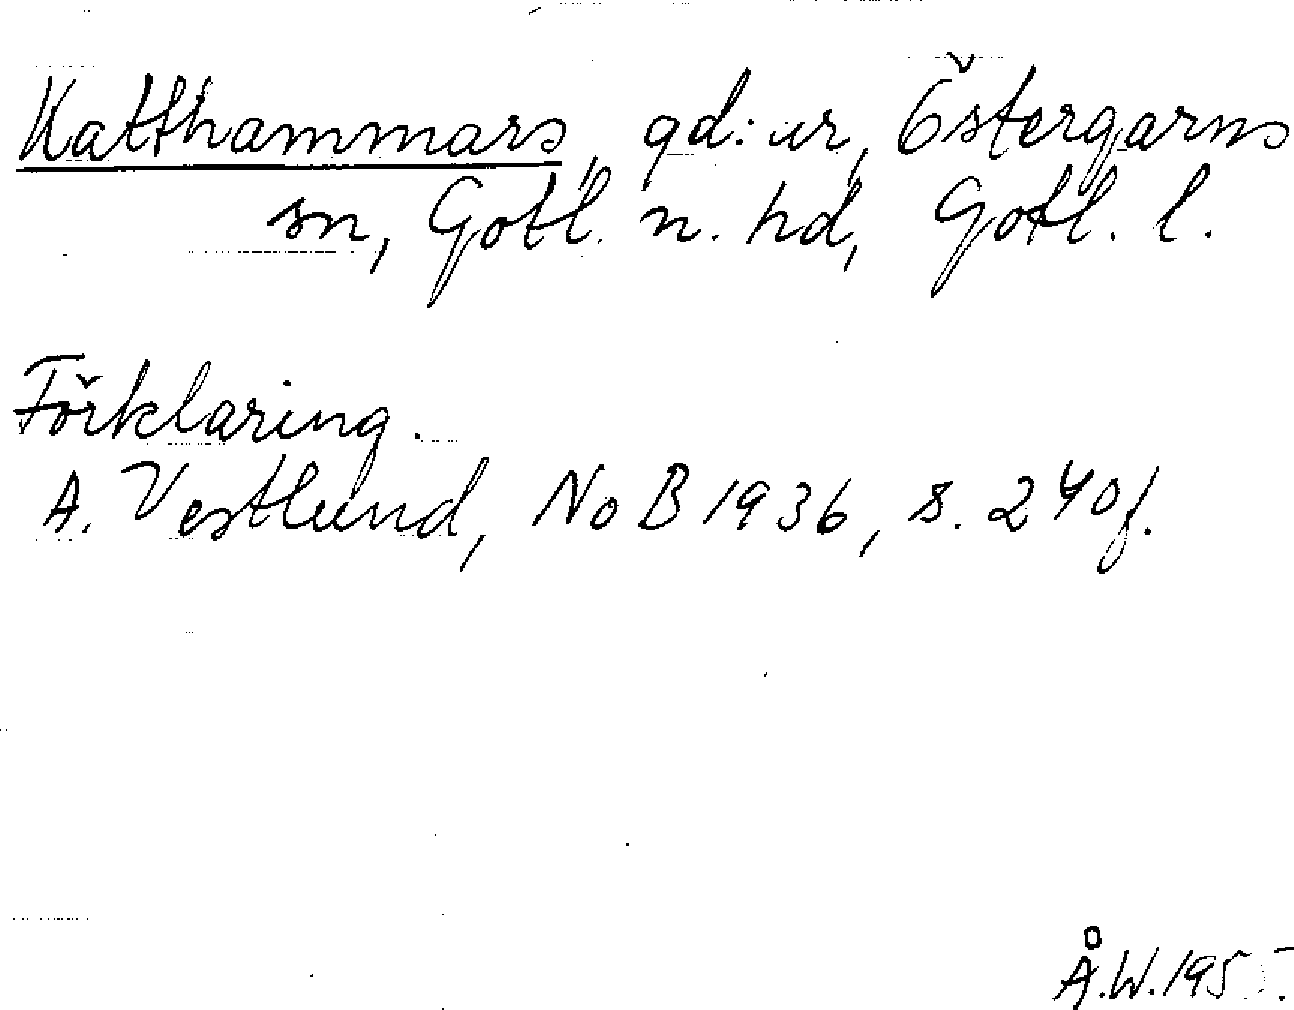 Katthammars, gd:ar, Östergarns
sn, Gotl. n. hd, Gotl. l.
Förklaring.
A. Vestlund, NoB 1936, s. 240f.
Å.W.1955.